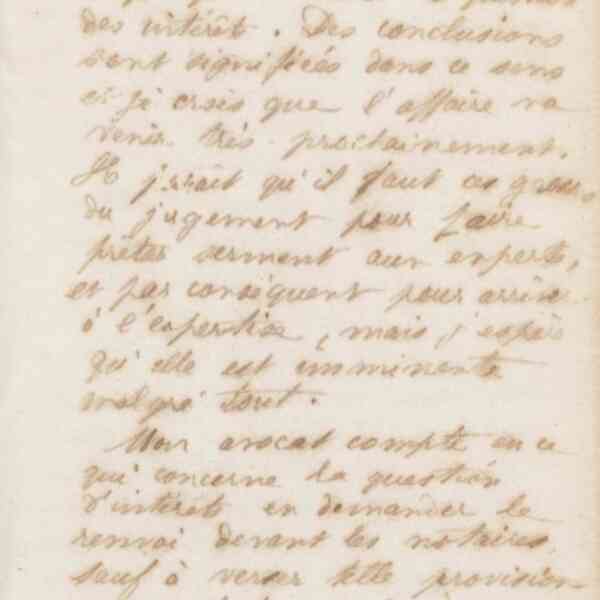 des intérêt. Des conclusions
sont signifiées dans ce sens
et je crois que l'affaire va
venir très prochainement.
Il paraît qu'il faut
du jugement pour faire
prêter serment aux experts,
et par conséquent pour
à l'expertise, mais j'espère
qu'elle est imminente
malgré tout.
Mon avocat compte en ce
qui concerne la question
d'intérêts en demander le
renvoi devant les notaires,
sauf à verser telle provision